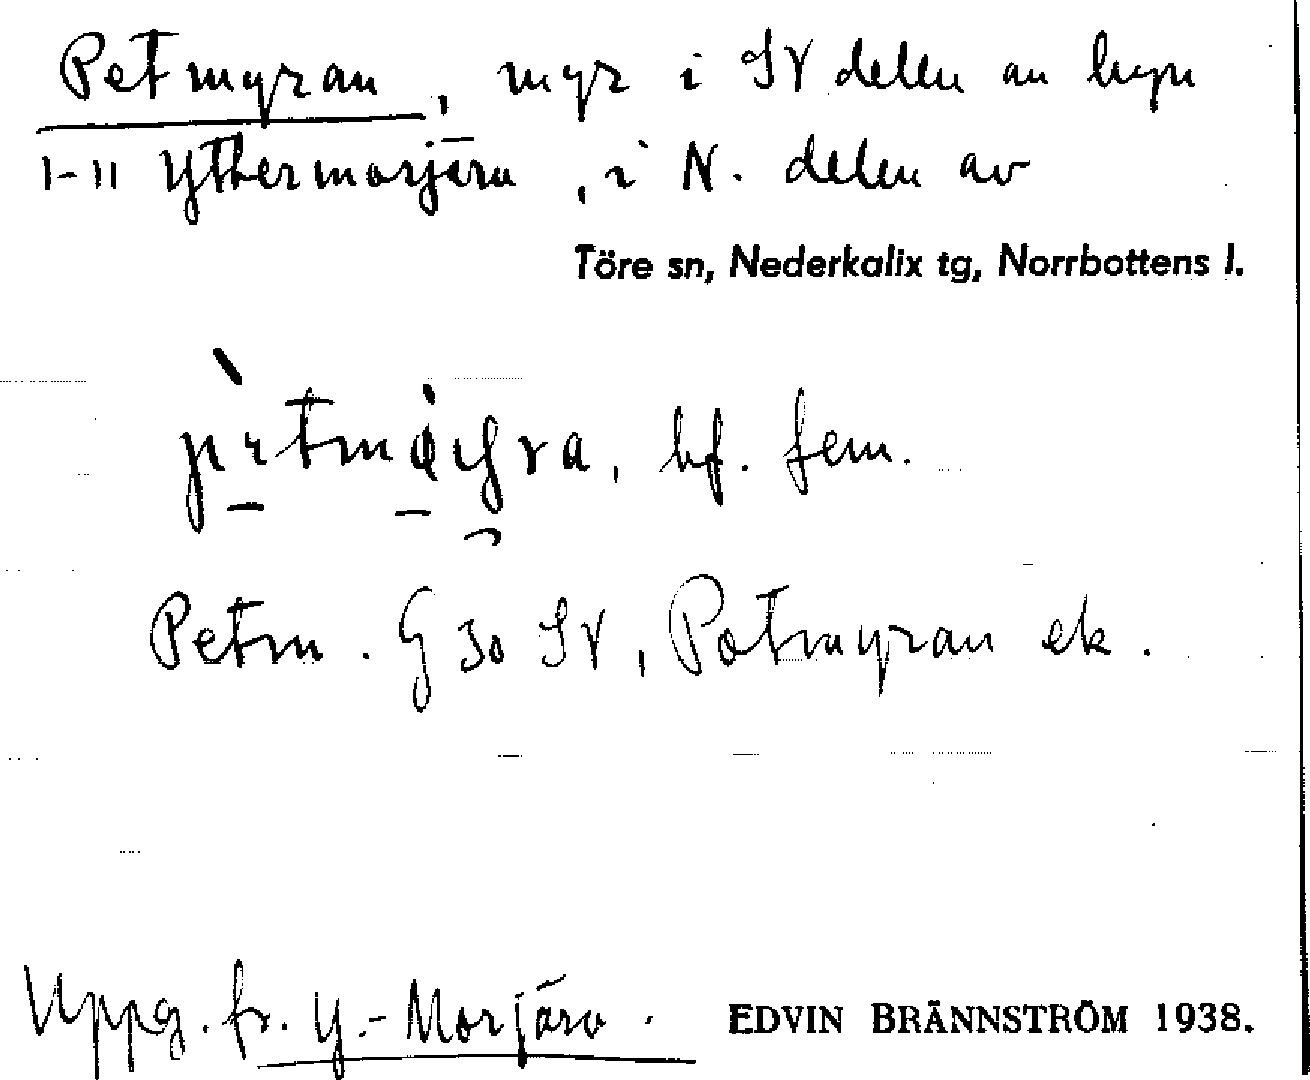 Petmyran, myr i SV delen av byn
1-11 Yttermorjärv, i N. delen av
Töre sn, Nederkalix tg, Norrbottens l.
bf. fem.
Petm. G 30 SV, Potmyran ek.
Uppg. fr. Y.-Morjärv. EDVIN BRÄNNSTRÖM 1938.